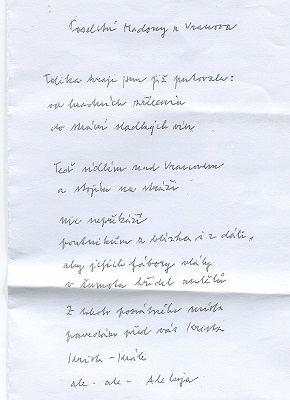 Poselství Madony z Vranova
Tolika kraji jsem již putovala:
od hradních zřícenin
do strání sladkých vín
Teď sídlím nad Vranovem
a stojím na stráži
nic nepřekáží
poutníkům z blízka i z dáli,
aby jejich fábory vlály
v šumotu křídel andělů
Z tohoto posvátného místa
povedám před vás Krista
Krista - Krále
ale - ale - Aleluja